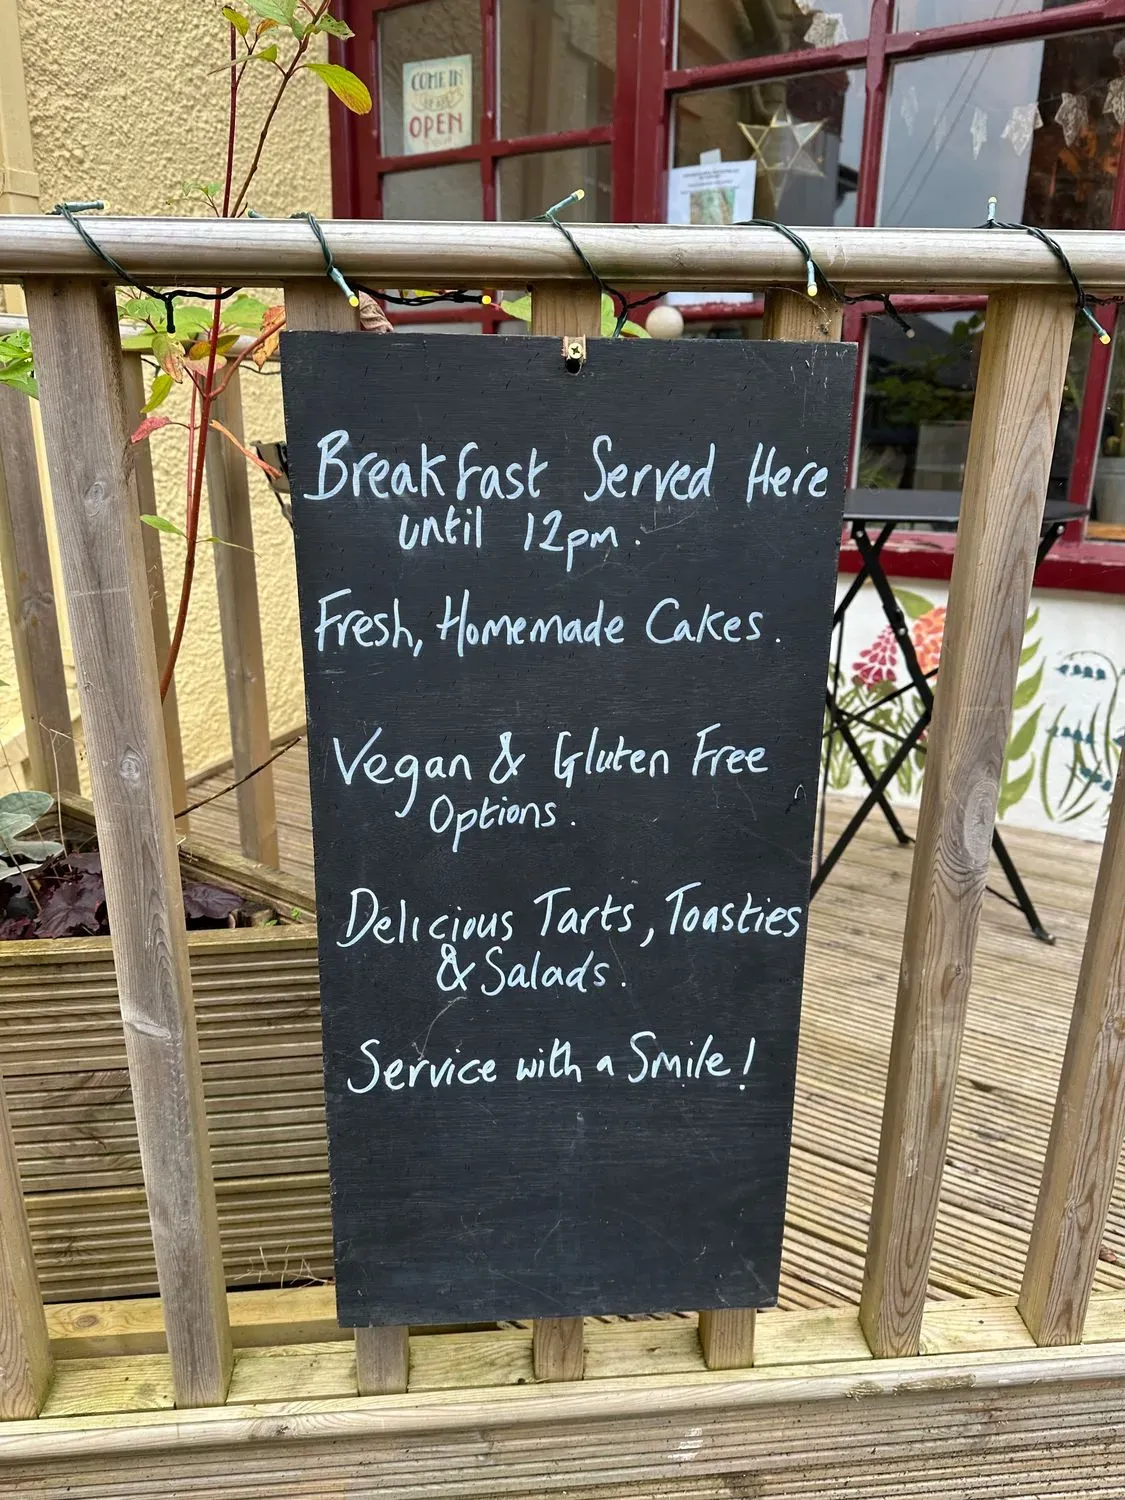 COME IN
OPEN
Breakfast Served Here
until 12pm.
Fresh, Homemade Cakes.
Vegan & Gluten Free
Options.
Delicious Tarts, Toasties
& Salads.
Service with a Smile!